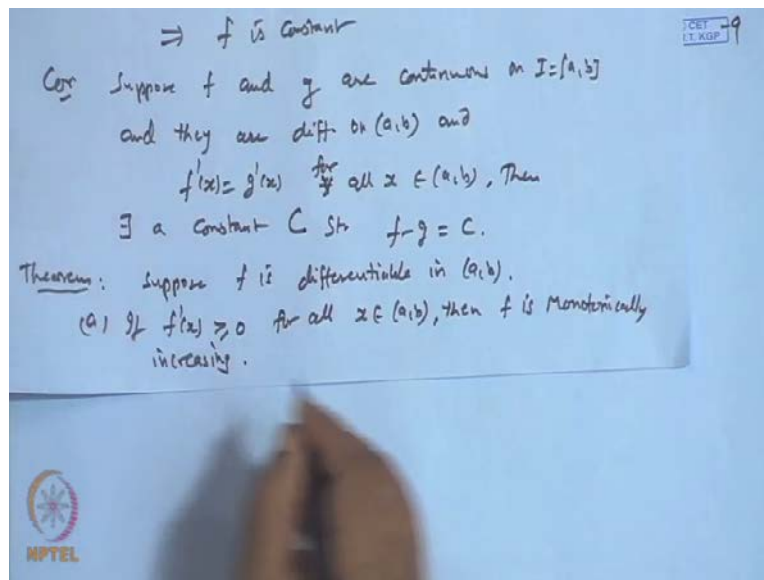 ⇒ f is constant
Cor Suppose f and g are continuous on I=[a,b]
and they are diff. on (a,b) and
f'(x) = g'(x) for all x ∈ (a,b), Then
∃ a constant C st. f-g = C.
Theorem: Suppose f is differentiable in (a,b).
(a) If f'(x) ≥ 0 for all x ∈ (a,b), then f is Monotonically
increasing.
CET
I.T. KGP
-9
NPTEL